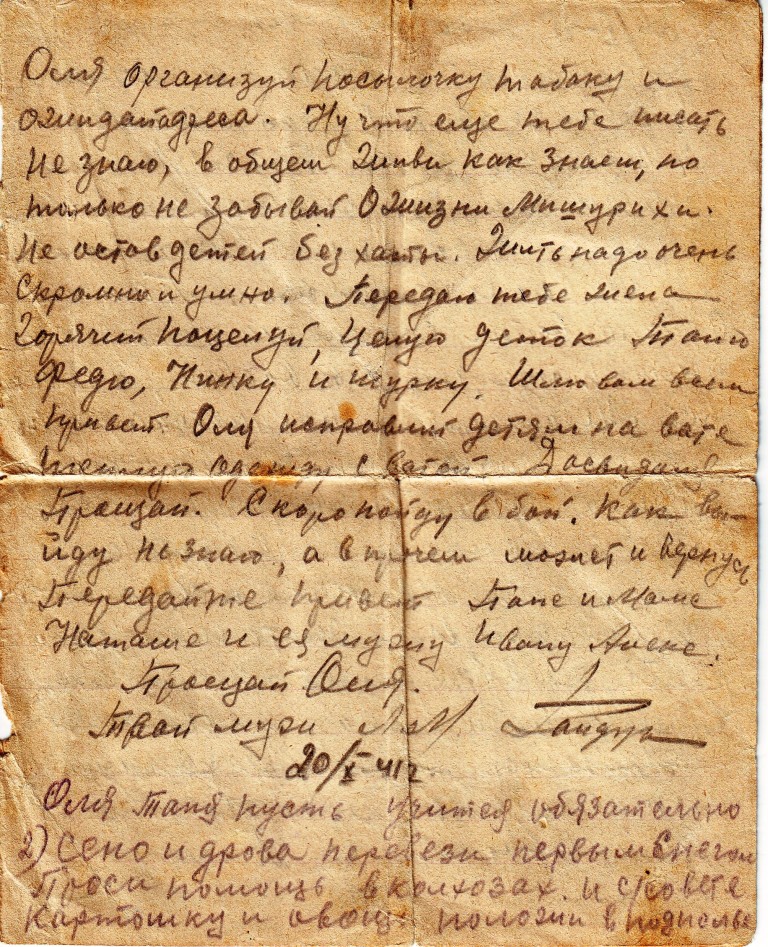 Оля организуй посылочку табаку и
ожидай адреса. Ну что еще тебе писать
не знаю, в общем живи как знаеш, но
только не забывай о жизни Мишурихи.
Не остав детей без хаты. Жить надо очень
скромно и умно. Передаю тебе жена
горячий поцелуй, целую деток Таню
Федю, Нинку и Шурку. Шлю вам всем
привет. Оля исправиш детям на вате
одежду с ватой Досвидания
Прощай. Скоро пойду в бой. Как вы-
йду не знаю, а в прочем может и вернусь
Передайте привет Папе и Маме
Наташе и ея мужу Ивану Алекс.
Прощай Оля.
Твой муж
20/X-41г.
Оля Таня пусть учится обязательно
2) Сено и дрова перевези первым снегом
Проси помощь в колхозах и с/совете
Картошку и овощ положи в подполье